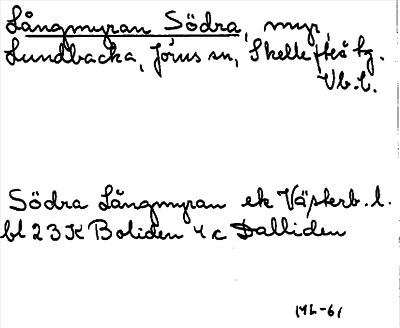 Långmyran Södra, myr,
Lundbacka, Jörns sn, Skellefteå tg.
Vb. l.
Södra Långmyran ek Västerb. l.
bl 23K Boliden 4c Dalliden
ML-61